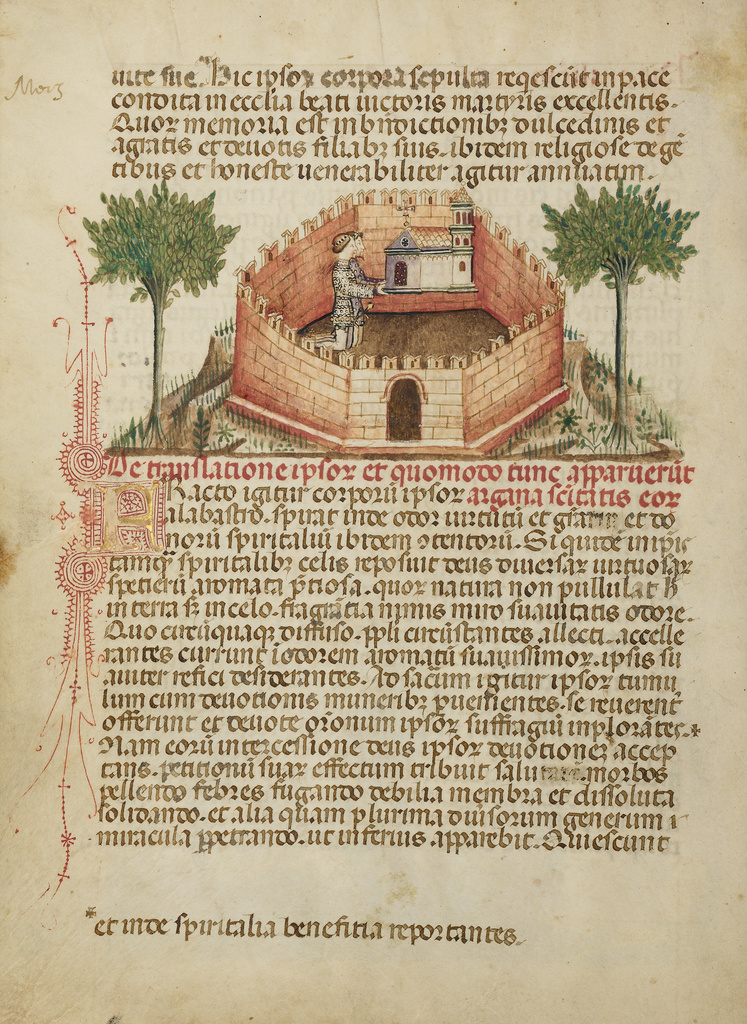 uite sue. Hic ipsoꝝ corpora sepulta reqescūt in pace
condita in ecclīa beati uictoris martyris excellentis.
Quoꝝ memoria est in bn̄dictionibꝫ dulcedinis et
agratis et deuotis filiabꝫ suis. ibidem religiose degē
tibus et honeste uenerabiliter agitur annuatim.
De translatione ipsoꝝ et quomodo tunc apparuerūt
Facto igitur corporū ipsoꝝ argana scītatis eoꝝ
alabastrō. spirat inde odor uirtutū et grāꝝ et do
norū spiritaliū ibidem ꝯtentorū. Si quidē in ip̄is
tamqꝫ spiritalibꝫ celis reposuit deus diuersaꝝ uirtuosaꝝ
spetierū aromata p̄tiosa. quoꝝ natura non pullulat h̄
in terra sꝫ in celo. fragrātia nimis miro suauitatis odore.
Quo circūquaqꝫ diffuso. pp̄li circūstantes allecti. accele
rantes currunt ī odorem aromatū suauissimoꝝ. ipsis su
auiter refici desiderantes. Ad sacum igitur ipsoꝝ tumu
lum cum deuotionis muneribꝫ ꝓuenientes. se reuerent̄
offerunt et deuote or̄onum ipsoꝝ suffragiū inplorātes.*
Nam eorū intercessione deus ipsoꝝ deuotiones accep
tans. petitionū suaꝝ effectum tribuit salutarē. morbos
pellendo febres fugando debilia membra et dissoluta
solidando. et alia quam plurima diuisorum generum
miracula ꝑpetrando. ut inferius apparebit. Quiescunt
*et inde spiritalia benefitia reportantes.